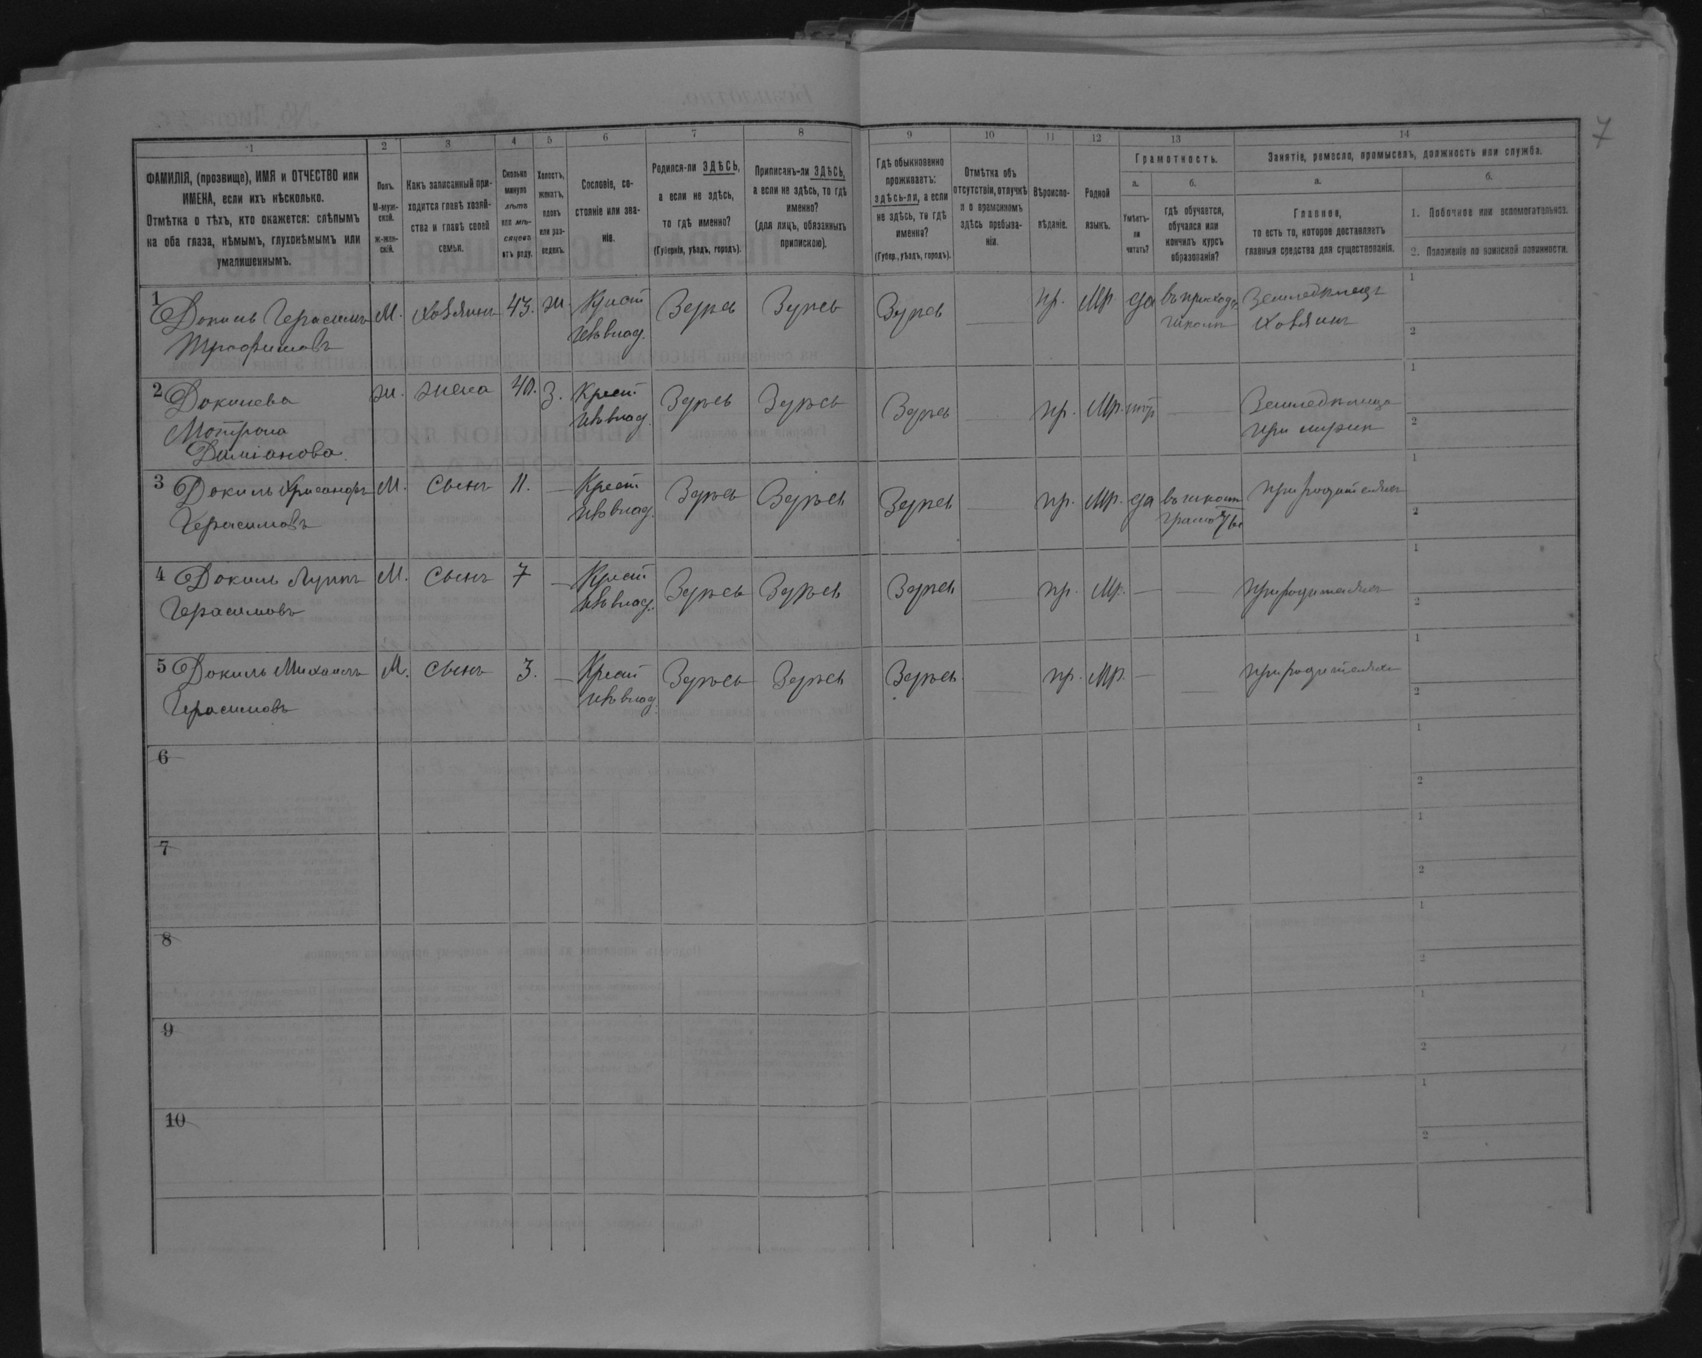 7
1 2 3 4 5 6 7 8 9 10 11 12 13 14
ФАМИЛІЯ, (прозвище), ИМЯ и ОТЧЕСТВО или
ИМЕНА, если ихъ нѣсколько.
Отмѣтка о тѣхъ, кто окажется: слѣпымъ
на оба глаза, нѣмымъ, глухонѣмымъ или
умалишеннымъ.
Полъ.
М-муж-
ской.
ж-жен-
скій.
Какъ записанный при-
ходится главѣ хозяй-
ства и главѣ своей
семьи.
Сколько
минуло
лѣтъ
или мѣ-
сяцевъ
отъ роду.
Холостъ,
женатъ,
вдовъ
или раз-
веденъ.
Сословіе, со-
стояніе или зва-
ніе.
Родился-ли ЗДѢСЬ,
а если не здѣсь,
то гдѣ именно?
(Губернія, уѣздъ, городъ).
Приписанъ-ли ЗДѢСЬ,
а если не здѣсь, то гдѣ
именно?
(для лицъ, обязанныхъ
припискою).
Гдѣ обыкновенно
проживаетъ:
здѣсь-ли, а если
не здѣсь, то гдѣ
именно?
(Губер., уѣздъ, городъ).
Отмѣтка объ
отсутствіи, отлучкѣ
и о временномъ
здѣсь пребыва-
ніи.
Вѣроиспо-
вѣданіе.
Родной
языкъ.
Грамотность.
а.
Умѣетъ-
ли
читать?
б.
гдѣ обучается,
обучался или
кончилъ курсъ
образованія?
Занятіе, ремесло, промыселъ, должность или служба.
а.
Главное,
то есть то, которое доставляетъ
главныя средства для существованія.
б.
1. Побочное или вспомогательное.
2. Положеніе по воинской повинности.
1 Докиль Герасимъ М. хозяинъ 43. ж. Крест Здѣсь Здѣсь Здѣсь пр. Мр. да въ приход Земледѣлецъ 1
Трофимовъ школѣ хозяинъ 2
2 Докилева ж. жена 40. З. Крест Здѣсь Здѣсь Здѣсь пр. Мр. Земледѣлица 1
Мотрона при мужѣ 2
Даміанова.
3 Докиль М. сынъ 11. Крест Здѣсь Здѣсь Здѣсь пр. Мр. да въ школѣ при родителяхъ 1
Герасимовъ грамоты 2
4 Докиль М. сынъ 7 Крест Здѣсь Здѣсь Здѣсь пр. Мр. при родителяхъ 1
Герасимовъ 2
5 Докиль Михаилъ М. сынъ 3. Крест Здѣсь Здѣсь Здѣсь пр. Мр. при родителяхъ 1
Герасимовъ 2
6 1
2
7 1
2
8 1
2
9 1
2
10 1
2